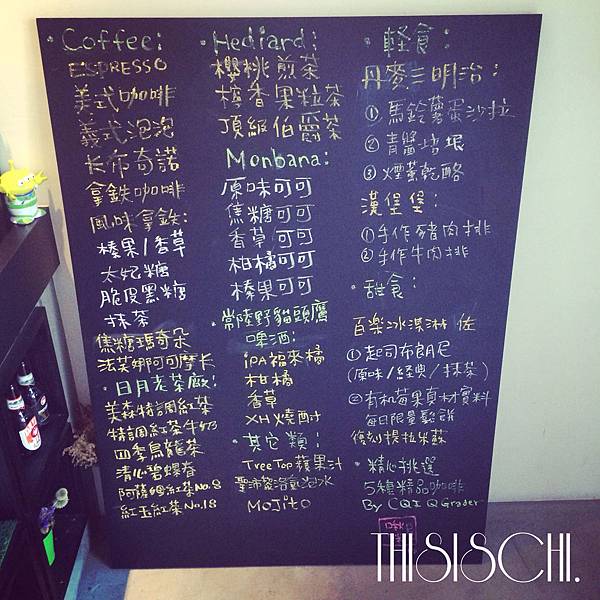 Coffee:
ESPRESSO
美式咖啡
義式泡泡
卡布奇諾
拿鐵咖啡
風味拿鐵:
榛果/香草
太妃糖
脆皮黑糖
抹茶
焦糖瑪奇朵
法芙娜阿可摩卡
・日月老茶廠:
美森特調紅茶
特調紅茶牛奶
四季烏龍茶
清心碧螺春
阿薩姆紅茶No.8
紅玉紅茶No.18
・Hediard:
櫻桃煎茶
檸香果粒茶
頂級伯爵茶
Monbana:
原味可可
焦糖可可
香草可可
柑橘可可
榛果可可
・常陸野貓頭鷹
啤酒:
iPA福來橘
柑橘
香草
XH燒酎
・其它類:
TreeTop蘋果汁
聖沛黎洛氣泡水
MOJito
・輕食:
丹麥三明治:
①馬鈴薯蛋沙拉
②青醬培根
③煙燻乾酪
漢堡堡:
①手作豬肉排
②手作牛肉排
・甜食:
百樂冰淇淋 佐
①起司布朗尼
(原味/經典/抹茶)
②有机莓果夏材實料
每日限量鬆餅
復刻提拉米蘇
・精心挑選
5種精品咖啡
By CQI Q Grader
THISISCHI.